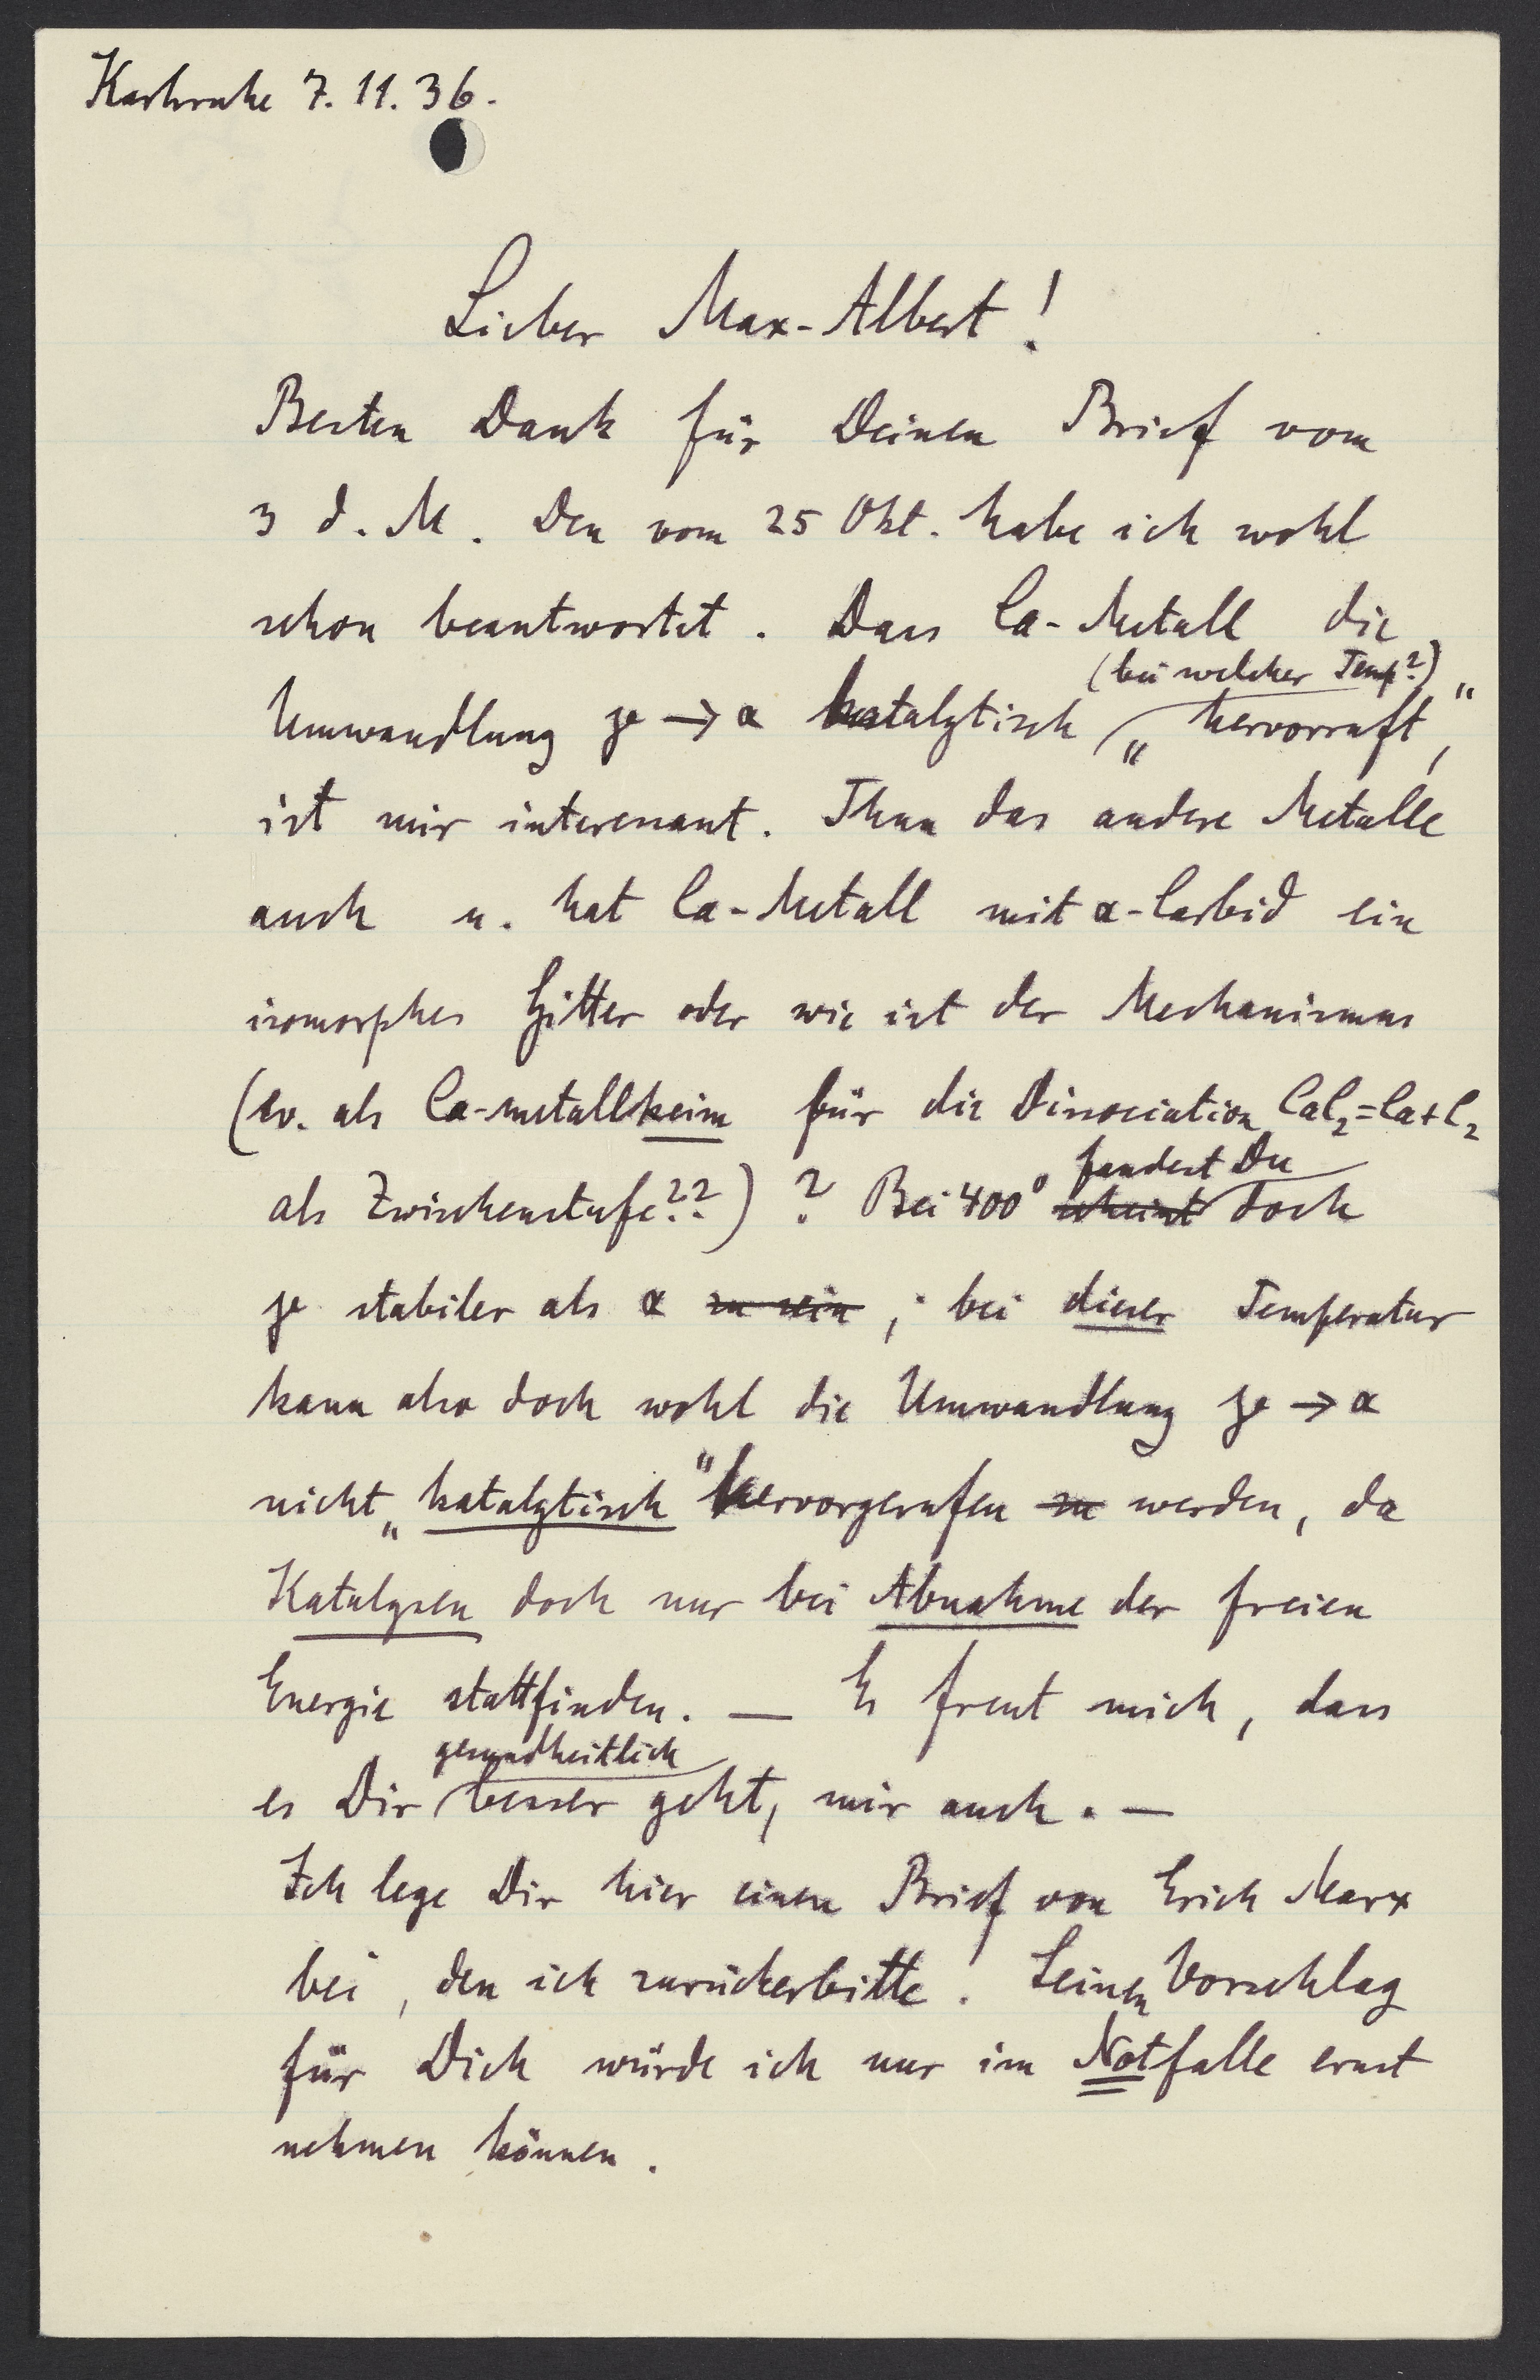 Karlsruhe 7.11.36.
Lieber Max-Albert!
Besten Dank für Deinen Brief vom
3 d. M. Den vom 25 Okt. habe ich wohl
schon beantwortet. Dass Ca-Metall die
(bei welcher Temp?)
Umwandlung γ → α katalytisch „hervorruft“,
ist mir interessant. Thun das andere Metalle
auch u. hat Ca-Metall mit α-Carbid ein
isomorphes Gitter oder wie ist der Mechanismus
(ev. als Ca-metallkeim für die Dissociation CaC₂=Ca+C₂
fandest Du
als Zwischenstufe??)? Bei 400° scheint doch
γ stabiler als α zu sein; bei dieser Temperatur
kann also doch wohl die Umwandlung γ → α
nicht „katalytisch“ hervorgerufen zu werden, da
Katalysen doch nur bei Abnahme der freien
Energie stattfinden. — Es freut mich, dass
gesundheitlich
es Dir besser geht, mir auch. —
Ich lege Dir hier einen Brief von Erich Marx
bei, den ich zurückerbitte. Seinen Vorschlag
für Dich würde ich nur im Notfalle ernst
nehmen können.